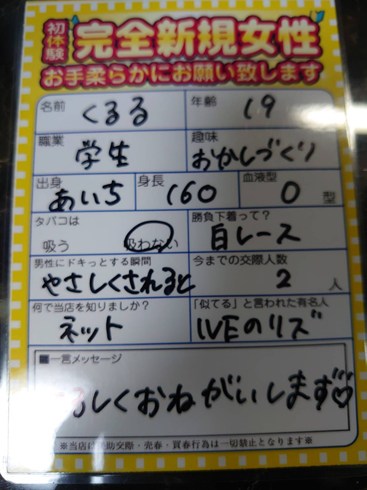 初体験 完全新規女性
お手柔らかにお願い致します
名前 くるる 年齢 19
職業 学生 趣味 おかしづくり
出身 あいち 身長 160 血液型 O 型
タバコは 吸う 吸わない 勝負下着って? 白レース
男性にドキっとする瞬間 やさしくされると 今までの交際人数 2 人
何で当店を知りましたか? ネット 「似てる」と言われた有名人 IVEのリズ
■一言メッセージ
ろしくおねがいします♡
※当店は援助交際・売春・買春行為は一切禁止となります※